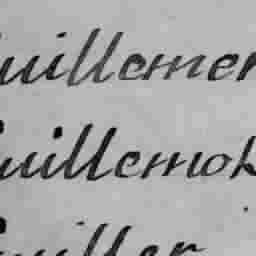 uillemer
uillemot
uiller